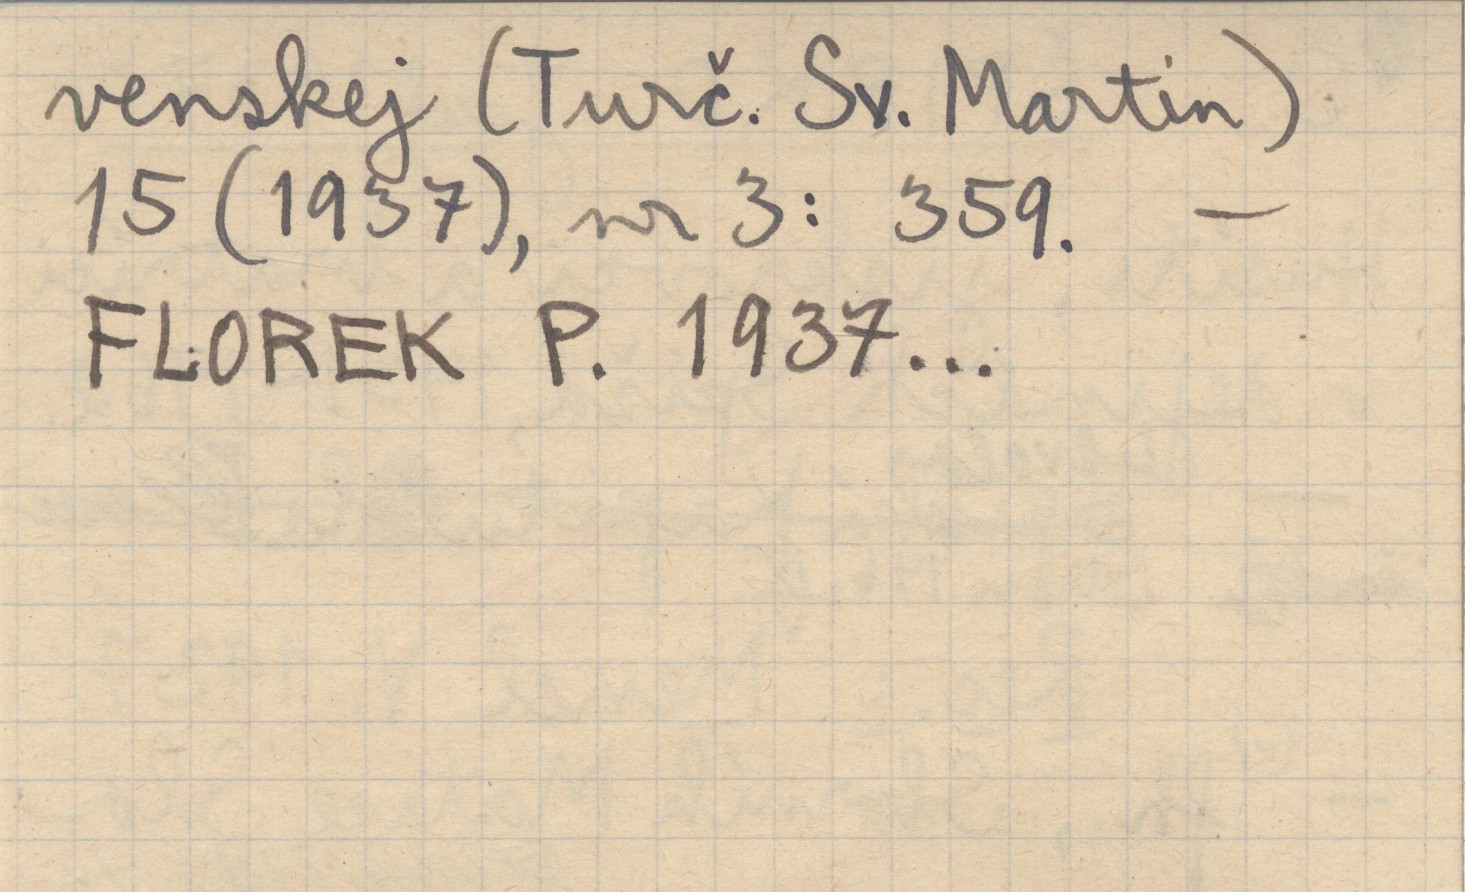 venskej (Turč. Sv. Martin)
15 (1937), nr 3: 359. —
FLOREK P. 1937...